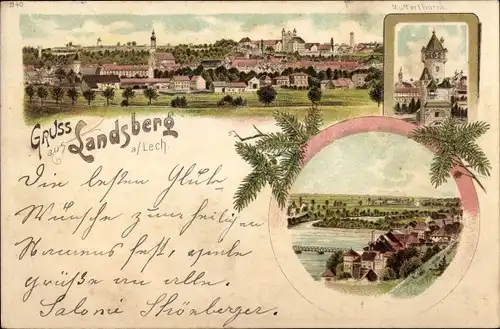 940
Mutterthurm.
Gruss
aus
Landsberg
a/Lech.
Die besten Glück
Wünsche zum heiligen
Namensfest, viele
grüße an alle.
Salomie Schönberger.